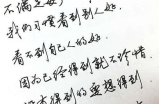 不满足，
我们习惯看到别人好
看不到自己人的好
因为已经得到就不珍惜
没有得到的要想得到